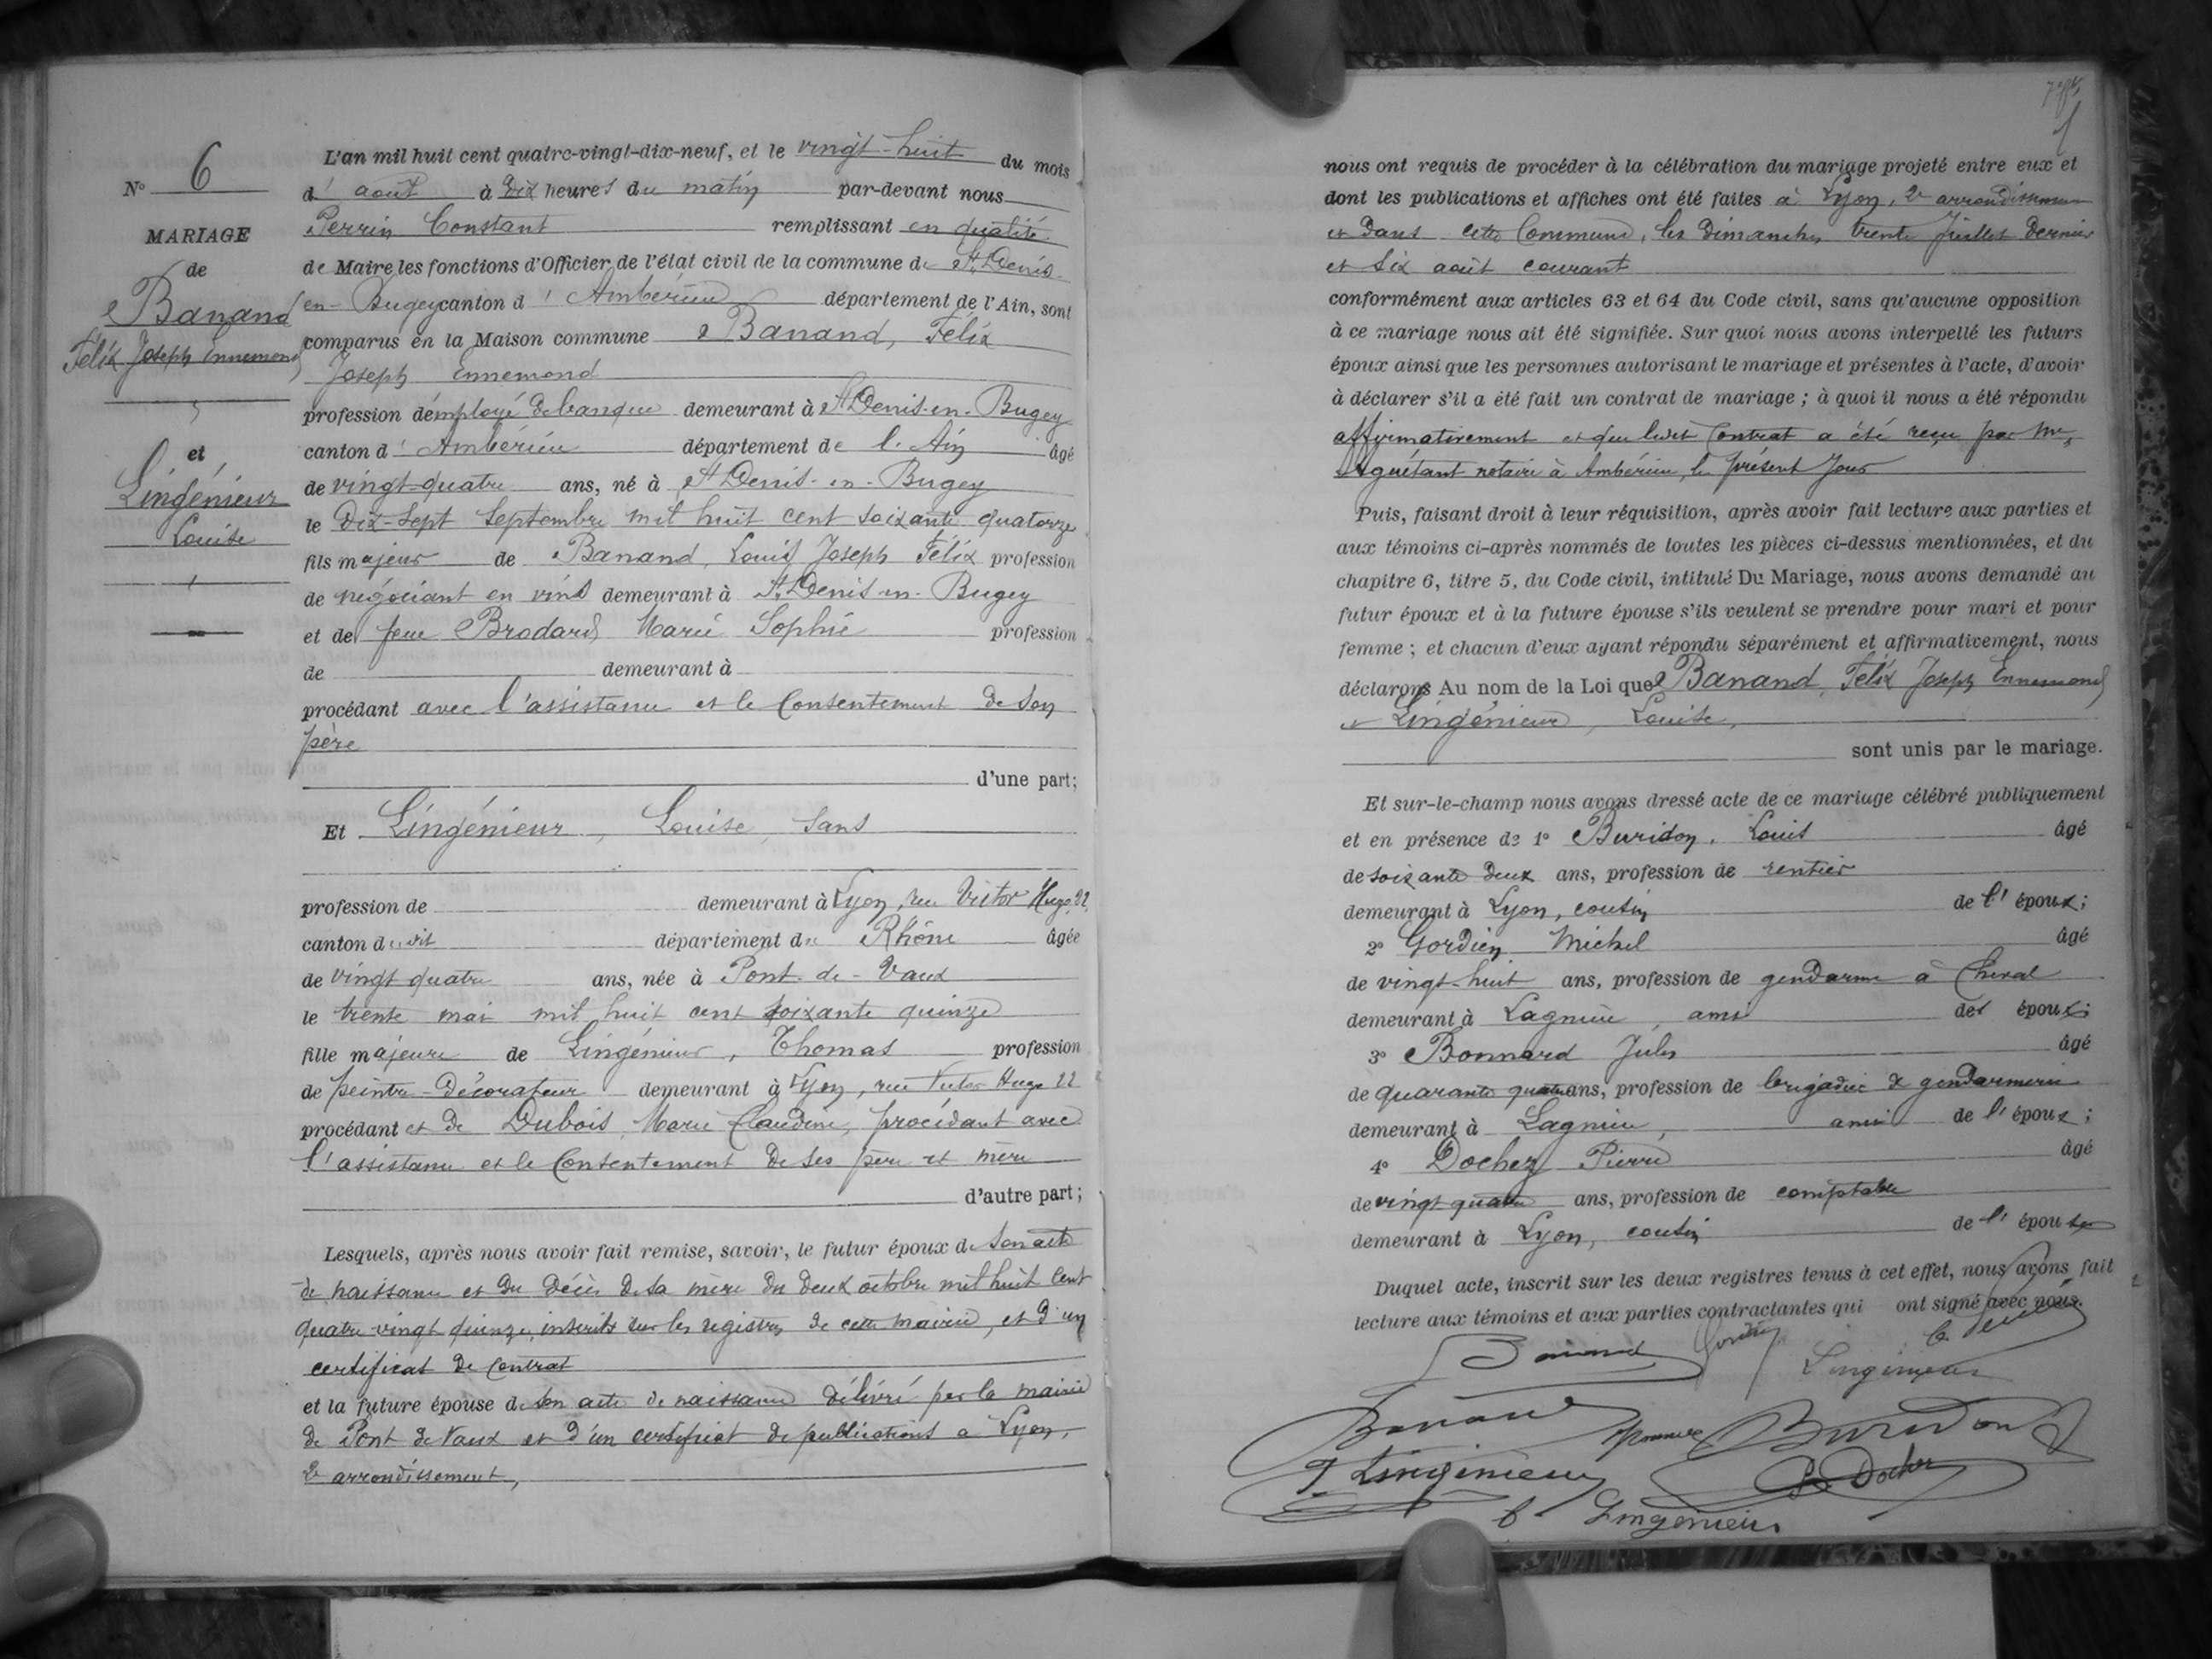 N° 6
MARIAGE
de
Banand
Félix Joseph Ennemond
et
Lingénieur
Louise
L'an mil huit cent quatre-vingt-dix-neuf, et le vingt-huit du mois
d' août à dix heures du matin par-devant nous
Perrin Constant remplissant en qualité
de Maire les fonctions d'Officier de l'état civil de la commune de St Denis
en-Bugey canton d' Ambérieu département de l'Ain, sont
comparus en la Maison commune Banand, Félix
Joseph Ennemond
profession d'employé de banque demeurant à St Denis-en-Bugey
canton d' Ambérieu département de l'Ain âgé
de vingt-quatre ans, né à St Denis-en-Bugey
le dix-sept Septembre mil huit cent soixante quatorze
fils majeur de Banand, Louis Joseph Félix profession
de négociant en vins demeurant à St Denis-en-Bugey
et de feue Brodard Marie Sophie profession
de demeurant à
procédant avec l'assistance et le Consentement de son
père
d'une part;
Et Lingénieur, Louise, sans
profession de demeurant à Lyon, rue Victor Hugo, 22
canton du dit département du Rhône âgée
de vingt quatre ans, née à Pont-de-Vaux
le trente mai mil huit cent soixante quinze
fille majeure de Lingénieur, Thomas profession
de peintre-décorateur demeurant à Lyon, rue Victor Hugo 22
procédant et de Dubois, Marie Claudine, procédant avec
l'assistance et le Consentement de ses père et mère
d'autre part;
Lesquels, après nous avoir fait remise, savoir, le futur époux de son acte
de naissance et du décès de sa mère du deux octobre mil huit cent
quatre vingt quinze, inscrits sur les registres de cette mairie, et d'un
certificat de contrat
et la future épouse de son acte de naissance délivré par la mairie
de Pont de Vaux et d'un certificat de publications à Lyon,
2e arrondissement,
nous ont requis de procéder à la célébration du mariage projeté entre eux et
dont les publications et affiches ont été faites à Lyon, 2e arrondissement
et dans cette Commune, les dimanches trente Juillet dernier
et six août courant
conformément aux articles 63 et 64 du Code civil, sans qu'aucune opposition
à ce mariage nous ait été signifiée. Sur quoi nous avons interpellé les futurs
époux ainsi que les personnes autorisant le mariage et présentes à l'acte, d'avoir
à déclarer s'il a été fait un contrat de mariage; à quoi il nous a été répondu
affirmativement et que ledit Contrat a été reçu par Me
Aguétant notaire à Ambérieu, le présent jour
Puis, faisant droit à leur réquisition, après avoir fait lecture aux parties et
aux témoins ci-après nommés de toutes les pièces ci-dessus mentionnées, et du
chapitre 6, titre 5, du Code civil, intitulé Du Mariage, nous avons demandé au
futur époux et à la future épouse s'ils veulent se prendre pour mari et pour
femme; et chacun d'eux ayant répondu séparément et affirmativement, nous
déclarons Au nom de la Loi que Banand, Félix Joseph Ennemond
et Lingénieur, Louise,
sont unis par le mariage.
Et sur-le-champ nous avons dressé acte de ce mariage célébré publiquement
et en présence de 1° Buridon, Louis âgé
de soixante deux ans, profession de rentier
demeurant à Lyon, cousin de l' époux;
2° Gordien Michel âgé
de vingt-huit ans, profession de gendarme à Cheval
demeurant à Lagnieu, ami des époux;
3° Bonnard Jules âgé
de quarante quatre ans, profession de brigadier de gendarmerie
demeurant à Lagnieu, ami de l' époux;
4° Dochez Pierre âgé
de vingt quatre ans, profession de comptable
demeurant à Lyon, cousin de l' épouse
Duquel acte, inscrit sur les deux registres tenus à cet effet, nous avons fait
lecture aux témoins et aux parties contractantes qui ont signé avec nous.
Banand Gordien C. Perrin
Lingénieur
Banand Buridon
Lingénieur P. Dochez
Lingénieur